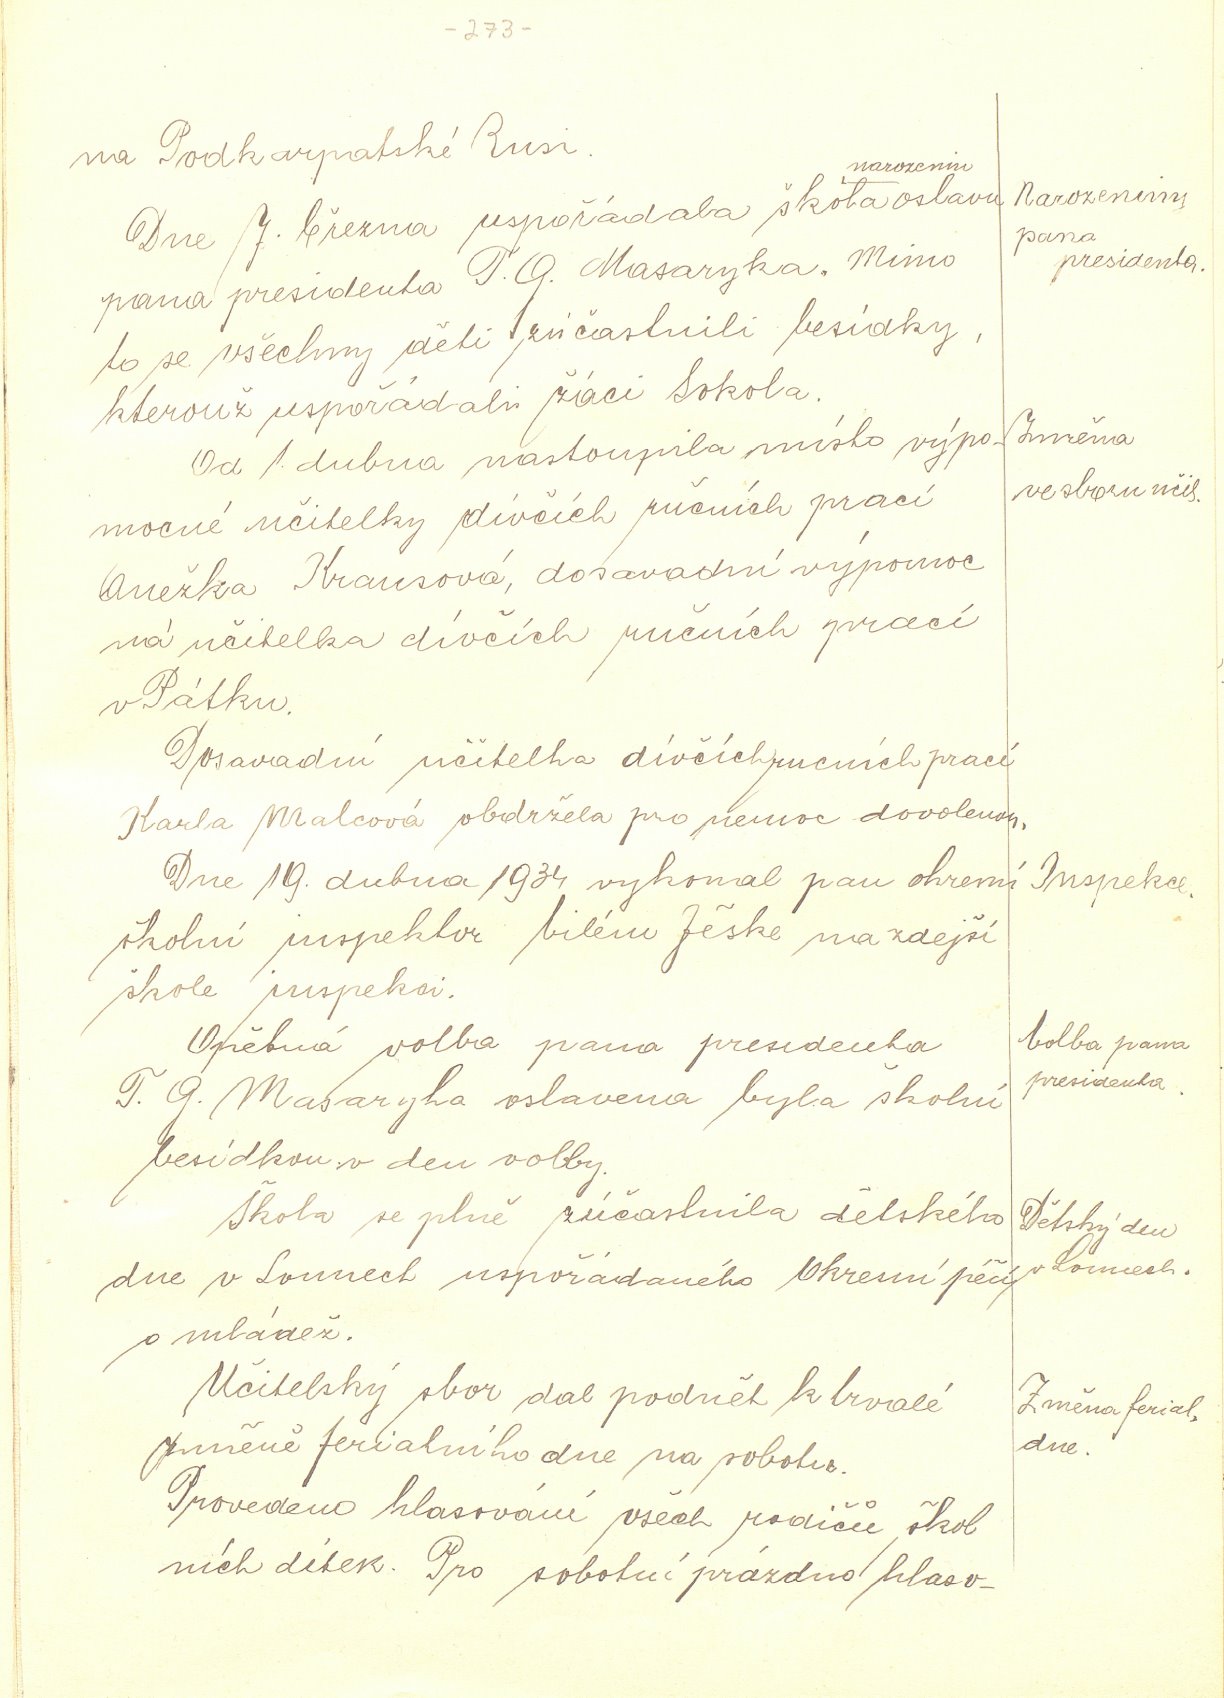 - 273 -
na Podkarpatské Rusi.
narozenin
Dne 7. března uspořádala škola oslavu
Narozeniny
pana
presidenta.
pana presidenta T. G. Masaryka. Mimo
to se všechny děti zúčastnili besídky,
kterouž uspořádali žáci Sokola.
Od 1. dubna nastoupila místo výpo-
Změna
ve sboru učit.
mocné učitelky dívčích ručních prací
Anežka Krausová, dosavadní výpomoc
ná učitelka dívčích ručních prací
v Pátku.
Dosavadní učitelka dívčích ručních prací
Karla Malcová obdržela pro nemoc dovolenou.
Dne 19. dubna 1934 vykonal pan okresní
Inspekce.
školní inspektor Vilém Ješke na zdejší
škole inspekci.
Opětná volba pana presidenta
Volba pana
presidenta.
T. G. Masaryka oslavena byla školní
besídkou v den volby.
Škola se plně zúčastnila dětského
Dětský den
v Lounech.
dne v Lounech uspořádaného Okresní péčí
o mládež.
Učitelský sbor dal podnět k trvalé
Změna ferial.
dne.
změně ferialního dne na sobotu.
Provedeno hlasování všech rodičů škol
ních dítek. Pro sobotní prázdno hlaso-